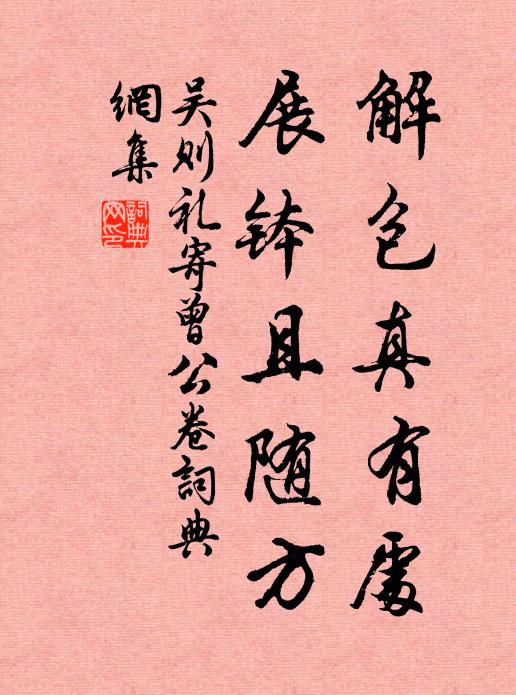 解包真有處
展鉢且随方
吴则礼寄曾公卷詞典
網集
詞典
网印